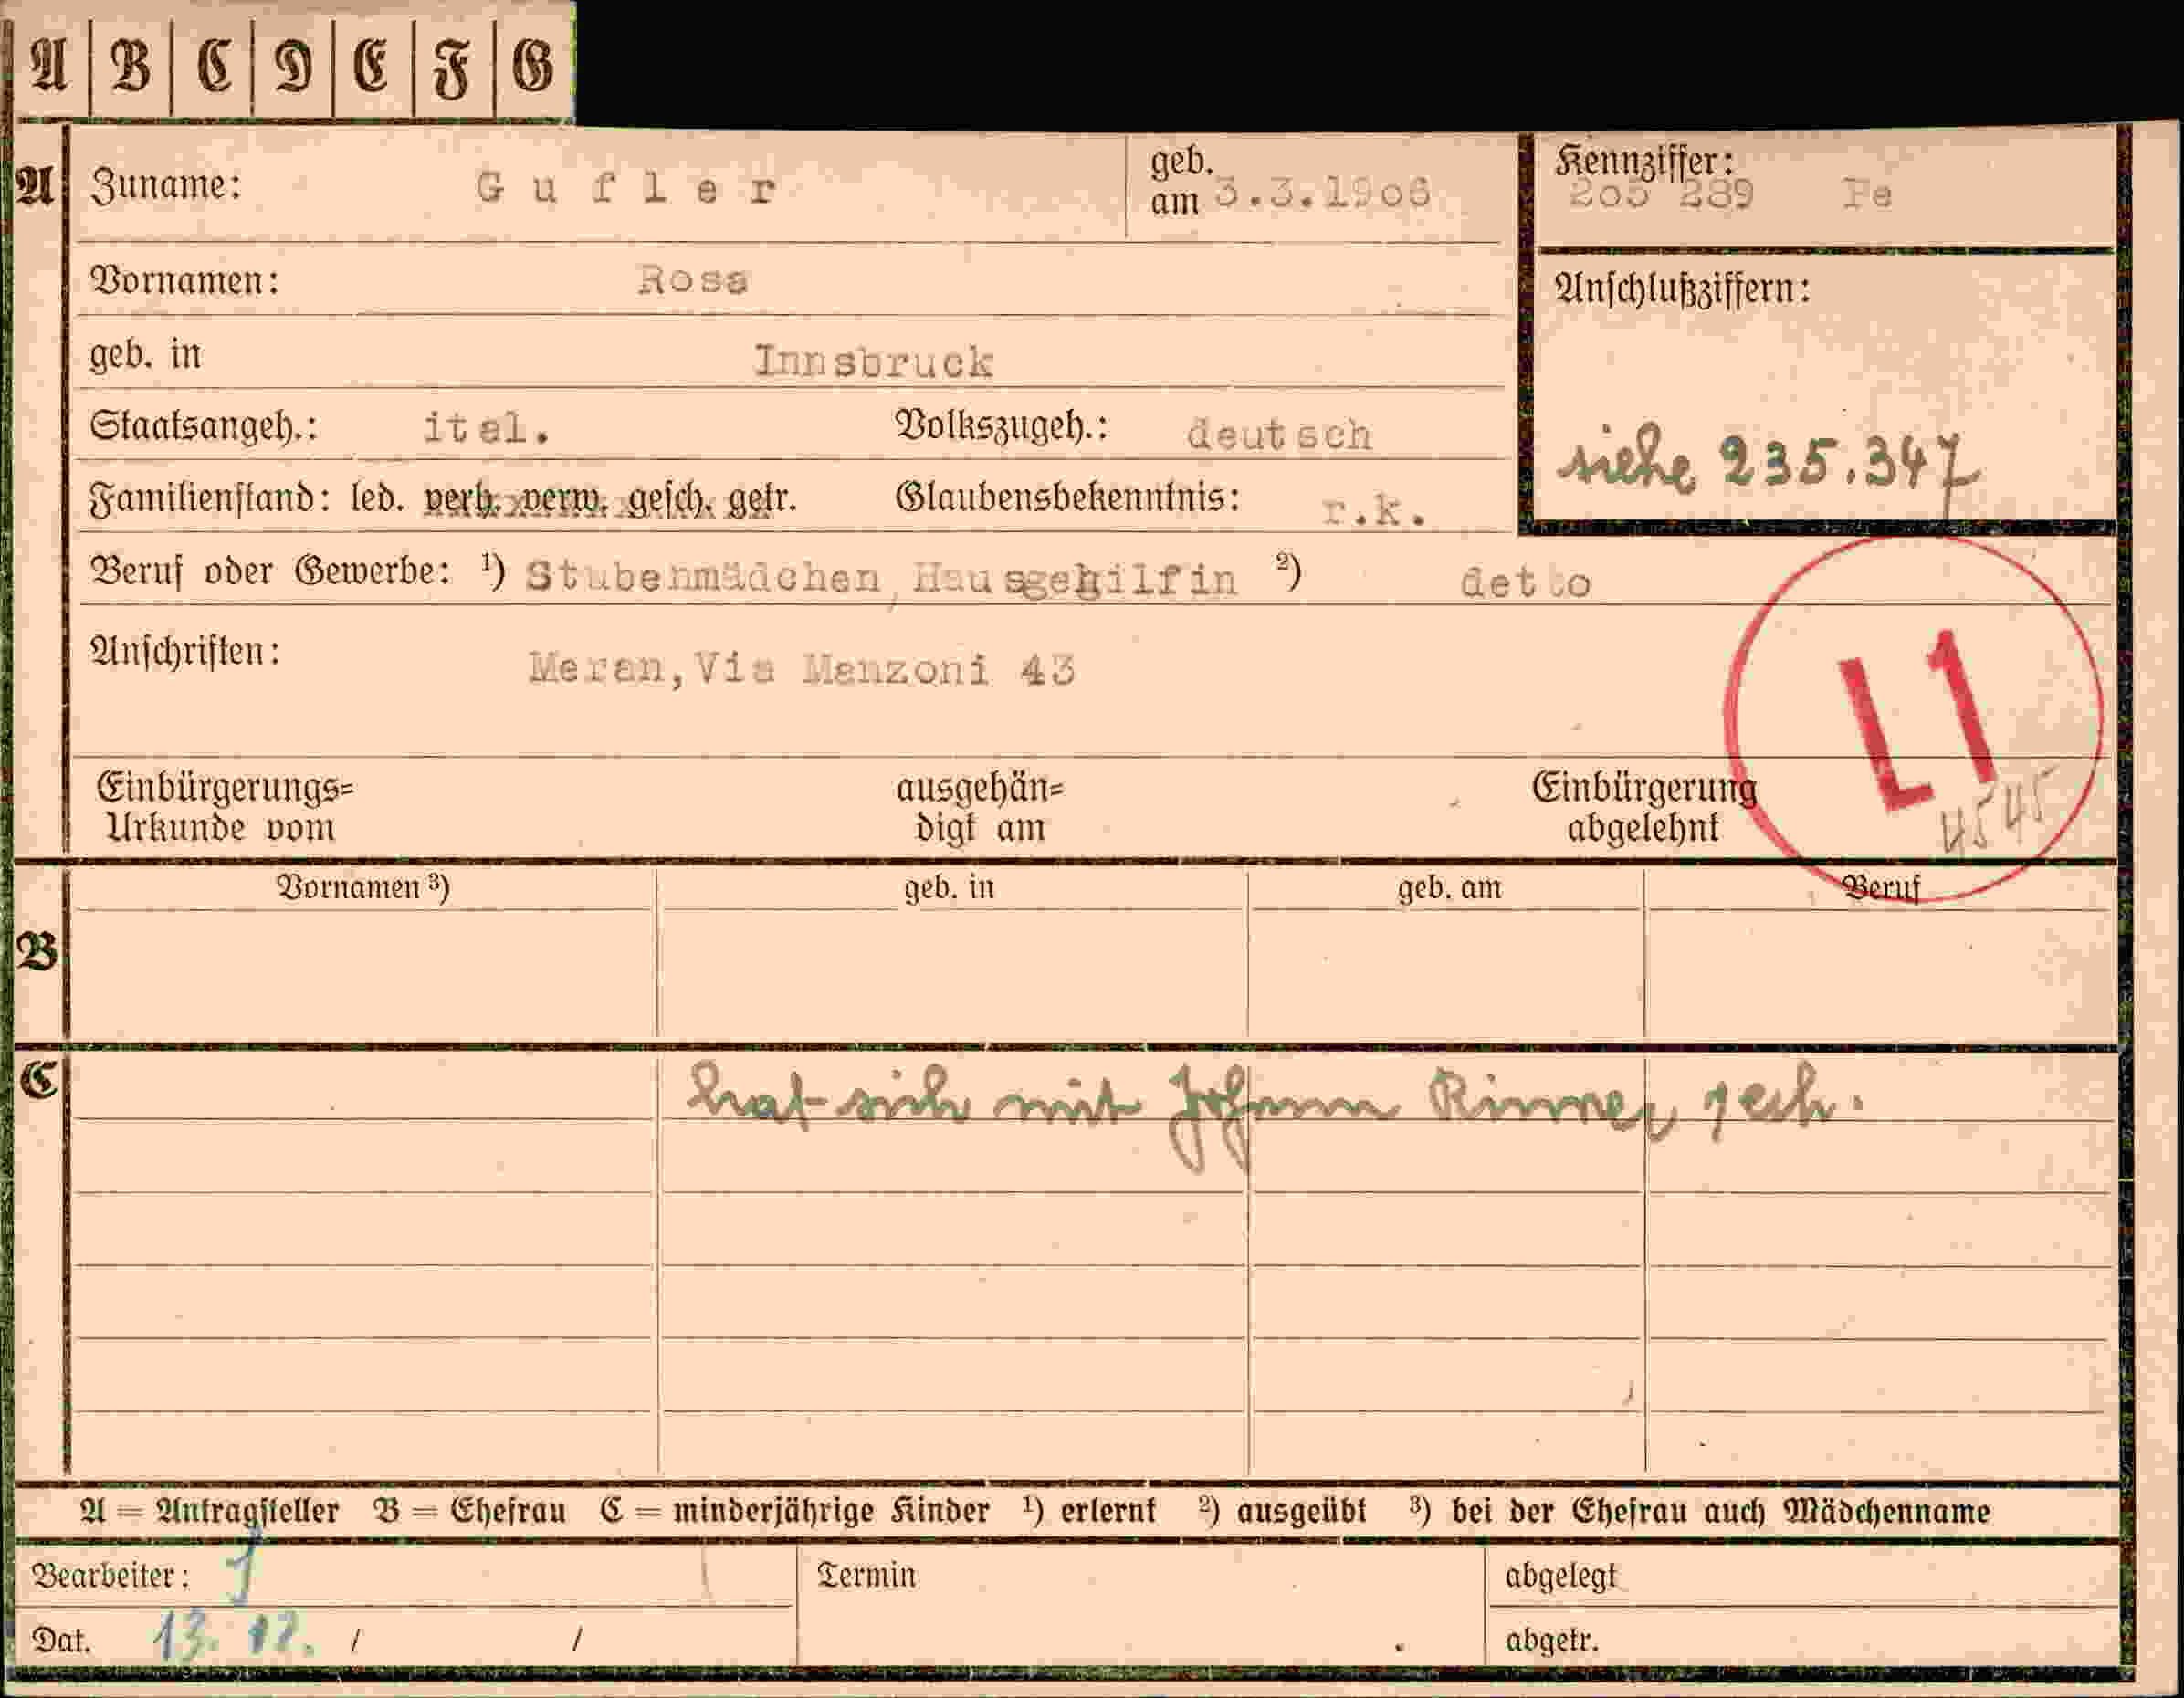 A B C D E F G
A Zuname: Gufler geb. am 3.3.1906 Kennziffer: 205 289 Fe
Vornamen: Rosa Anschlußziffern:
geb. in Innsbruck
Staatsangeh.: ital. Volkszugeh.: deutsch siehe 235.347
Familienstand: led. verh. verw. gesch. getr. Glaubensbekenntnis: r.k.
Beruf oder Gewerbe: ¹) Stubenmädchen, Hausgehilfin ²) detto
Anschriften: Meran, Via Manzoni 43
L1
Einbürgerungs= ausgehän= Einbürgerung
Urkunde vom digt am abgelehnt 4545
Vornamen ³) geb. in geb. am Beruf
B
C hat sich mit Johann Rinner
A = Antragsteller B = Ehefrau C = minderjährige Kinder ¹) erlernt ²) ausgeübt ³) bei der Ehefrau auch Mädchenname
Bearbeiter: Termin abgelegt
Dat. 13. 12. / / abgetr.